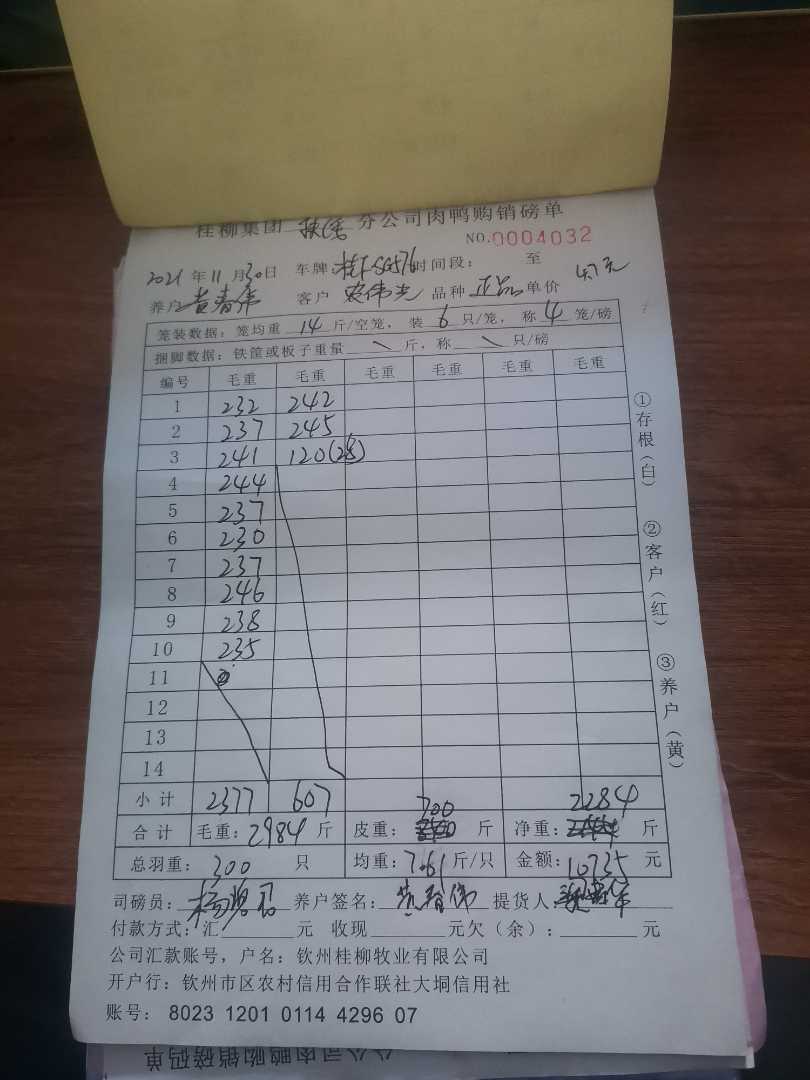 桂柳集团 扶绥 分公司肉鸭购销磅单
NO.0004032
2021 年 11 月 30 日 车牌: 时间段: 至
养户 黄春伟 客户 农伟光 品种 正品 单价 4.7元
笼装数据: 笼均重 14 斤/空笼, 装 6 只/笼, 称 4 笼/磅
捆脚数据: 铁筐或板子重量 \ 斤, 称 \ 只/磅
编号 毛重 毛重 毛重 毛重 毛重 毛重
1 232 242
2 237 245
3 241 120(28)
4 244
5 237
6 230
7 237
8 246
9 238
10 235
11
12
13
14
小计 2377 607
合计 毛重: 2984 斤 皮重: 700 斤 净重: 2284 斤
总羽重: 300 只 均重: 7.61 斤/只 金额: 10735 元
司磅员: 养户签名: 黄春伟 提货人:
付款方式: 汇 元 收现 元欠(余): 元
公司汇款账号, 户名: 钦州桂柳牧业有限公司
开户行: 钦州市区农村信用合作联社大垌信用社
账号: 8023 1201 0114 4296 07
①存根(白)
②客户(红)
③养户(黄)
分公司肉鸭购销磅码单